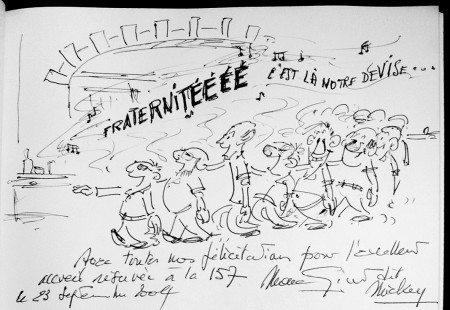 FRATERNITÉÉÉÉ
C'EST LÀ NOTRE DEVISE...
Avec toutes nos félicitations pour l'excellent
accueil réservée à la 157
le 23 Septembre 2004
dit
Mickey